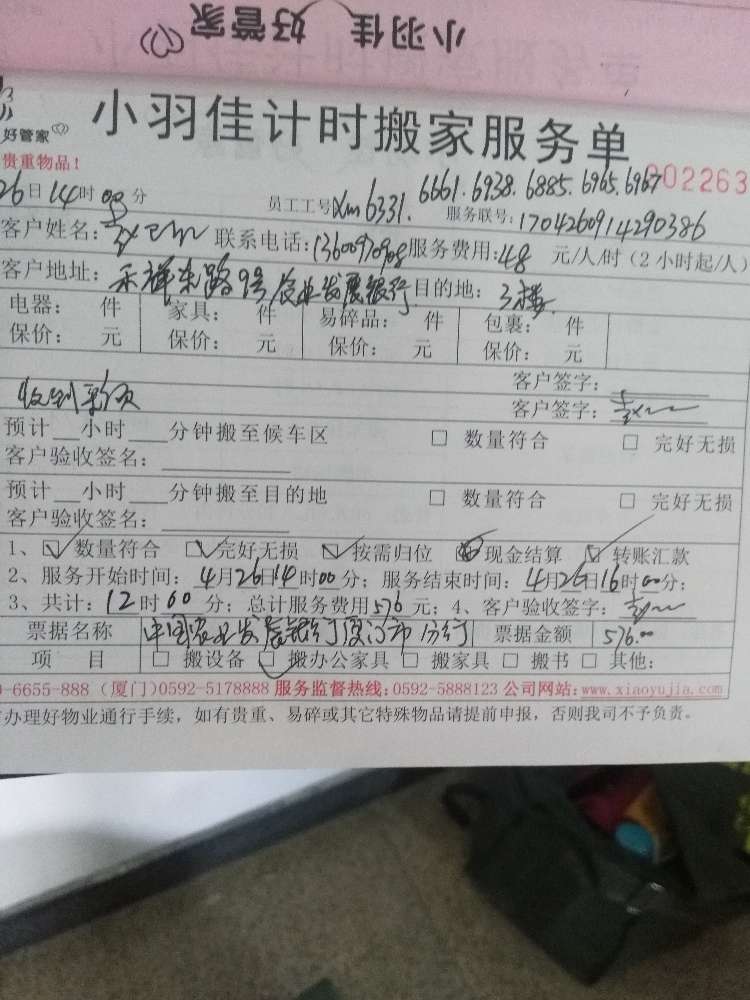 小羽佳 好管家
好管家
小羽佳计时搬家服务单
贵重物品！
002263
26日14时00分
员工工号Xm6331. 6661.6938.6885.6965.6967
服务联号:1704260914290386
客户姓名: 联系电话:13600970908服务费用:48 元/人/时（2小时起/人）
客户地址: 禾祥东路9号农业发展银行 目的地: 3楼
电器: 件 家具: 件 易碎品: 件 包裹: 件
保价: 元 保价: 元 保价: 元 保价: 元
客户签字:
收到 客户签字:
预计__小时___分钟搬至候车区 □ 数量符合 □ 完好无损
客户验收签名:
预计__小时___分钟搬至目的地 □ 数量符合 □ 完好无损
客户验收签名:
1、☑数量符合 ☑完好无损 ☑按需归位 现金结算 ☑转账汇款
2、服务开始时间: 4月26日14时00分; 服务结束时间: 4月26日16时00分;
3、共计: 12时00分; 总计服务费用576元; 4、客户验收签字:
票据名称 中国农业发展银行厦门市分行 票据金额 576.00
项 目 □ 搬设备 ☑ 搬办公家具 □ 搬家具 □ 搬书 □ 其他:
-6655-888（厦门）0592-5178888 服务监督热线:0592-5888123 公司网站:www.xiaoyujia.com
办理好物业通行手续，如有贵重、易碎或其它特殊物品请提前申报，否则我司不予负责。